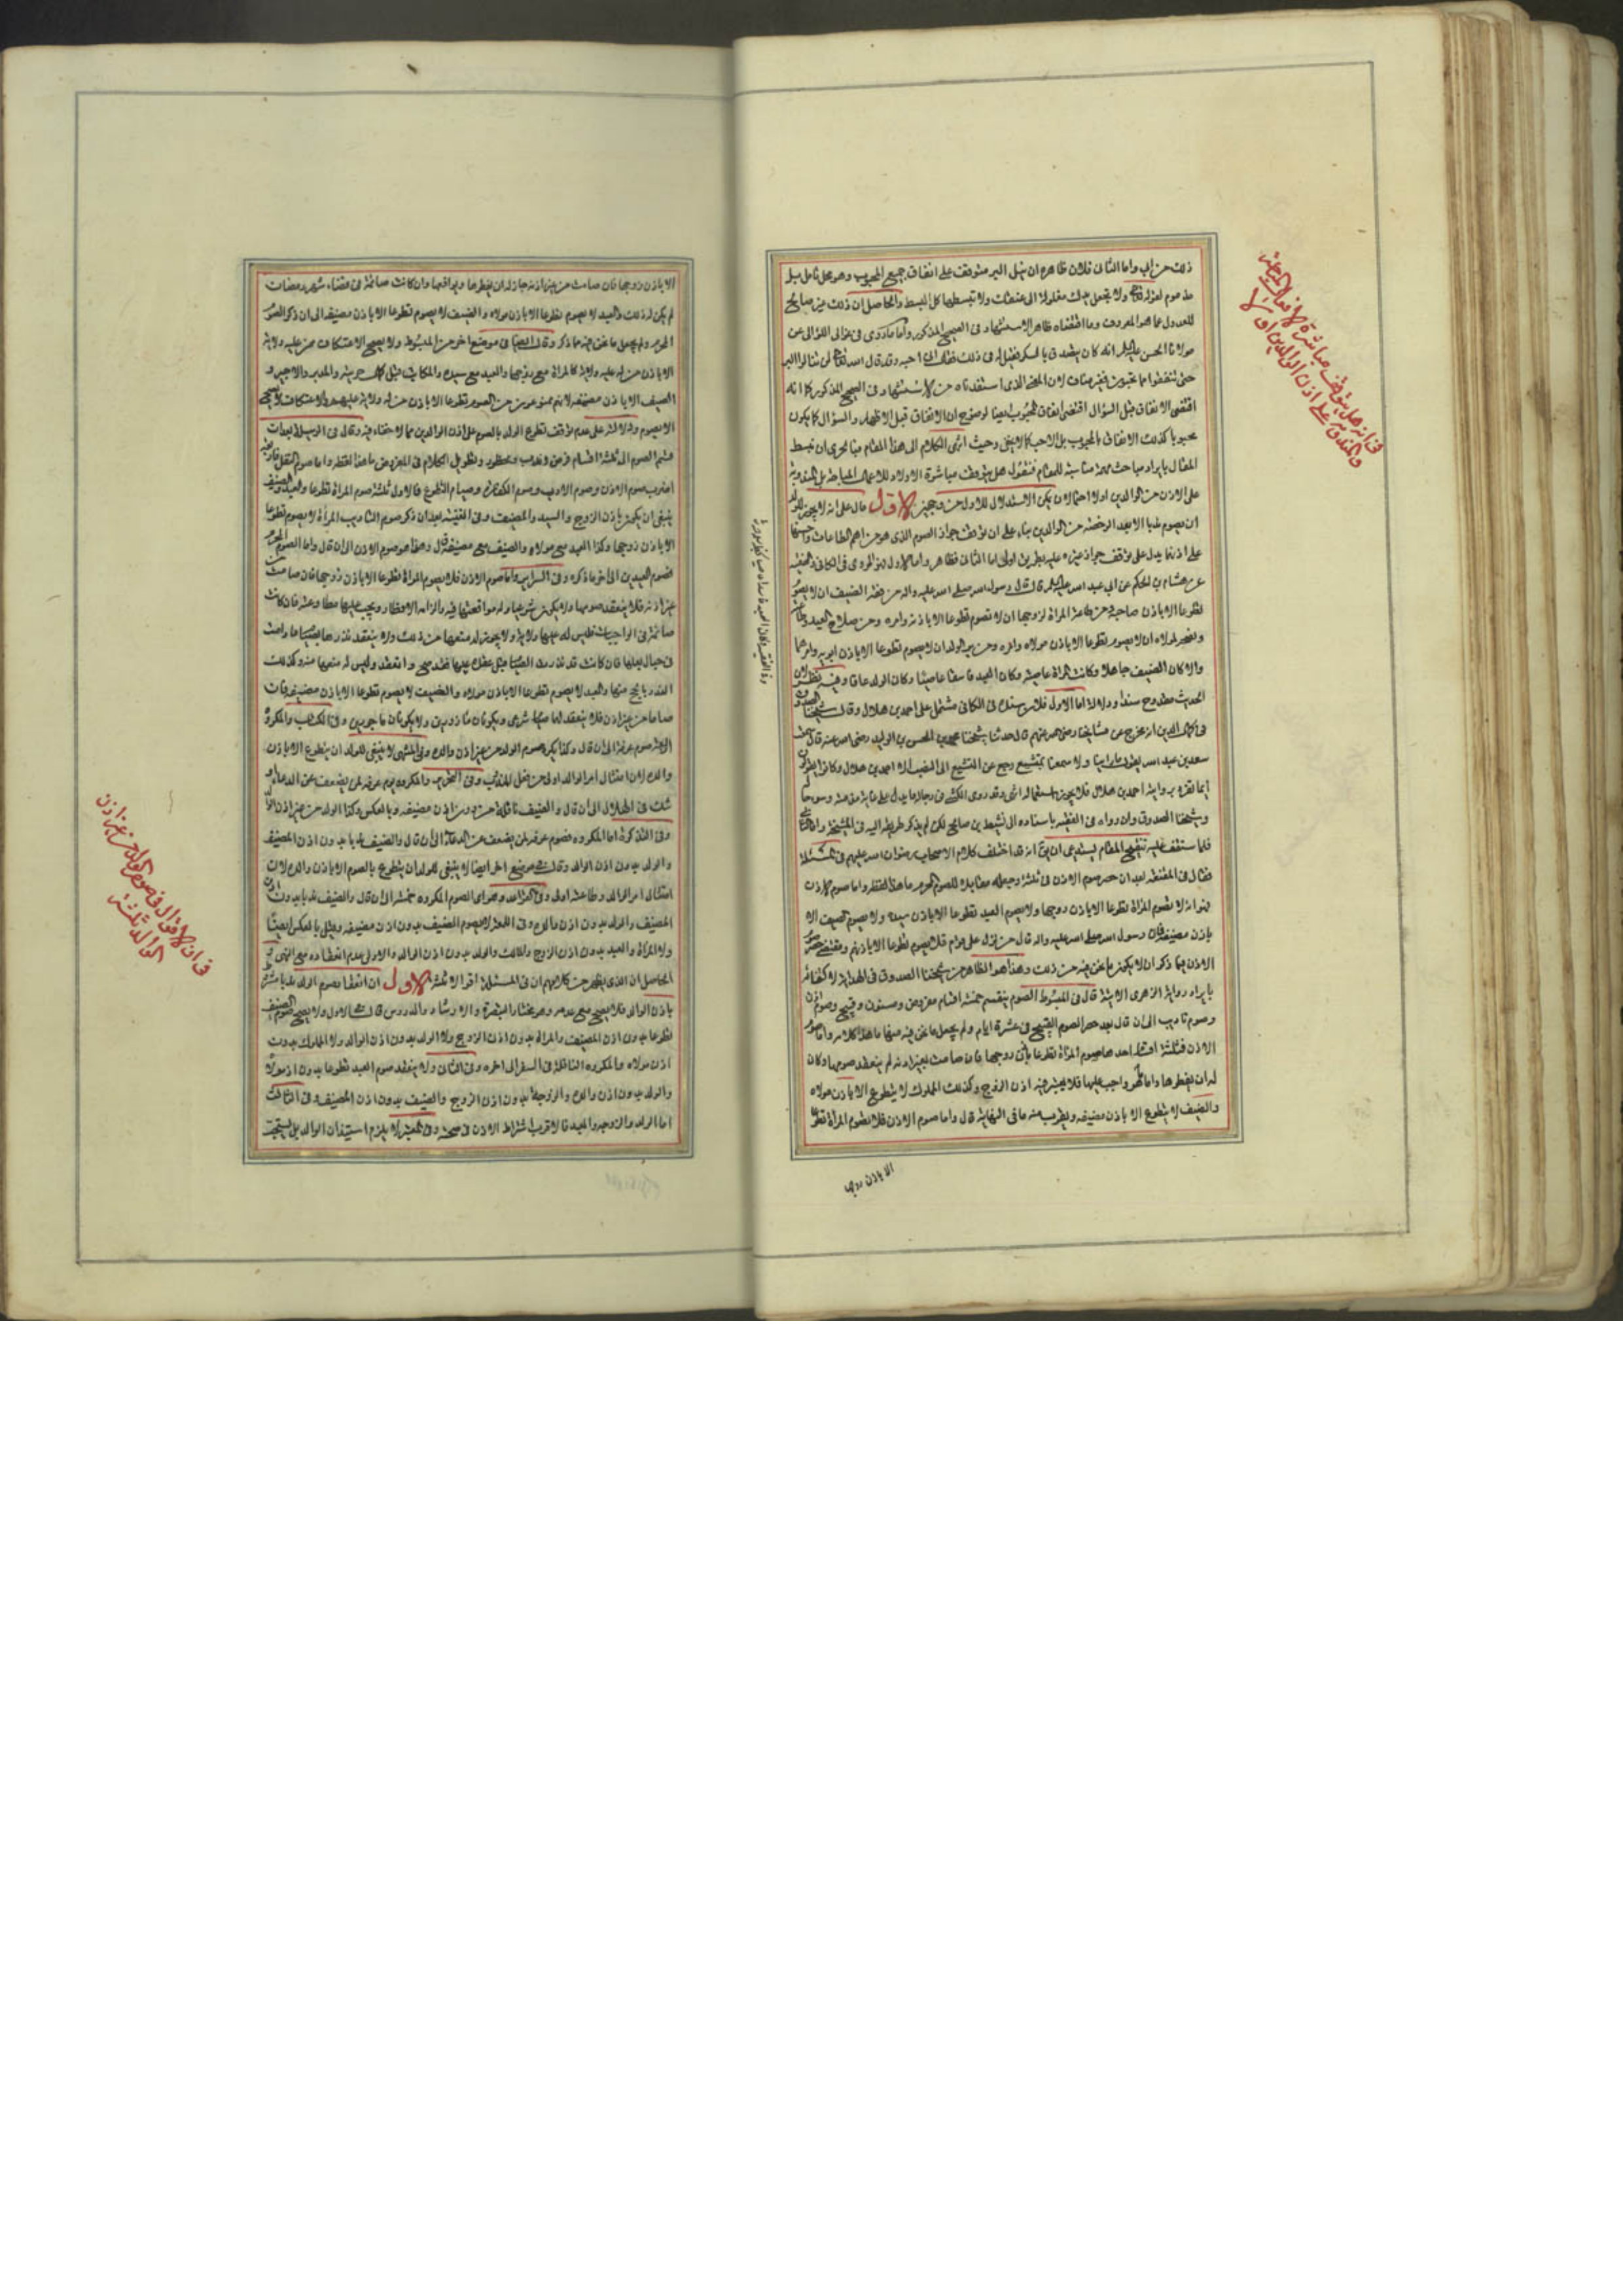 ذلك من الى واما الثانى فلان ظاهره ان نيل البر متوقف على انفاق جميع المحبوب وهو محل تامل بل
مذموم لقوله تعالى ولا تجعل يدك مغلولة الى عنقك ولا تبسطها كل البسط والحاصل ان ذلك غير صالح
للعدول عما هو المعروف وما اقتضاه ظاهر الاستشهاد فى الصحيح المذكور واما ما روى فى عوالى اللؤالى عن
مولانا الحسن عليه السلام انه كان يتصدق بالسكر فقيل له فى ذلك فقال انى احبه وقد قال الله تعالى لن تنالوا البر
حتى تنفقوا مما تحبون فغير مناف لان المعنى الذى استفدناه من الاستشهاد فى الصحيح المذكور كما انه
اقتضى الانفاق قبل السؤال اقتضى انفاق المحبوب ايضا لوضوح ان الانفاق قبل الاظهار والسؤال كما يكون
محبوبا كذلك الانفاق بالمحبوب بل الاحب كما لا يخفى وحيث انتهى الكلام الى هذا المقام فبالحرى ان نبسط
المقال بايراد مباحث مهمة مناسبة للمقام فنقول هل يتوقف مباشرة الاولاد للاعمال المباحة بل المندوبة
على الاذن من الوالدين اولا احتمالان يمكن الاستدلال للاول من وجهين الاول ما دل على انه لا يجوز للولد
ان يصوم ندبا الا بعد الرخصة من الوالدين بناء على ان توقف جواز الصوم الذى هو من اهم الطاعات واحسنها
على اذنهما يدل على توقف جواز غيره عليه بطريق اولى اما الثانى فظاهر واما الاول فهو المروى فى الكافى والفقيه
عن هشام بن الحكم عن ابى عبد الله عليه السلام قال قال رسول الله صلى الله عليه واله من فقه الضيف ان لا يصوم
تطوعا الا باذن صاحبه ومن طاعة المراة لزوجها ان لا تصوم تطوعا الا باذنه وامره ومن صلاح العبد وطاعته
ونصحه لمولاه ان لا يصوم تطوعا الا باذن مولاه وامره ومن بر الولد ان لا يصوم تطوعا الا باذن ابويه وامرهما
والا كان الضيف جاهلا وكانت المراة عاصية وكان العبد فاسقا عاصيا وكان الولد عاقا وفيه نظر لان
الحديث مقدوح سندا ودلالة اما الاول فلان سنده فى الكافى مشتمل على احمد بن هلال وقال شيخنا الصدوق
فى كمال الدين انه مخرج عن مشايخنا رضى الله عنهم قال حدثنا شيخنا محمد بن الحسن بن الوليد رضى الله عنه قال سمعت
سعد بن عبد الله يقول ما راينا ولا سمعنا بمتشيع رجع عن التشيع الى النصب الا احمد بن هلال وكانوا يقولون
ان ما تفرد بروايته احمد بن هلال فلا يجوز استعماله انتهى وقد روى الكشى فى رجاله ما يدل على غاية مذمته وسوء حاله
وشيخنا الصدوق وان رواه فى الفقيه باسناده الى نشيط بن صالح لكن لم يذكر طريقه اليه فى المشيخة واما الثانى
فلما ستقف عليه تنقيح المقام يستدعى ان يق انه قد اختلف كلام الاصحاب رضوان الله عليهم فى المسئلة
فقال فى المقنعة بعد ان حصر صوم الاذن فى ثلثة وجعله مقابلا للصوم المحرم ما هذا لفظه واما صوم الاذن
فهو انه لا تصوم المراة تطوعا الا باذن زوجها ولا يصوم العبد تطوعا الا باذن سيده ولا يصوم الضيف الا
باذن مضيفه قال رسول الله صلى الله عليه واله قال من نزل على قوم فلا يصوم تطوعا الا باذنهم ومقتضى حصره
الاذن فيما ذكر ان لا يكون ما نحن فيه من ذلك وهذا هو الظاهر من شيخنا الصدوق فى الهداية لاكتفائه
بايراد رواية الزهرى الاتية قال فى المبسوط الصوم ينقسم خمسة اقسام مفروض ومسنون وقبيح وصوم اذن
وصوم تاديب الى ان قال بعد حصر الصوم القبيح فى عشرة ايام ولم يجعل ما نحن فيه منها ما هذا كلامه واما صوم
الاذن فثلثة اقسام احدها صوم المراة تطوعا باذن زوجها فان صامت بغير اذنه لم ينعقد صومها وكان
له ان يفطرها واما ما هو واجب عليها فلا يعتبر فيه اذن الزوج وكذلك المملوك لا يتطوع الا باذن مولاه
والضيف لا يتطوع الا باذن مضيفه ويقرب منه ما فى النهاية قال واما صوم الاذن فلا تصوم المراة تطوعا
الا باذن زوجها
فى انه هل يتوقف مباشرة الافعال المباحة
والمندوبة على اذن الوالدين او لا
الا باذن زوجها فان صامت من غير اذنه جاز له ان يفطرها ويواقعها وان كانت صائمة فى قضاء شهر رمضان
لم يكن له ذلك والعبد لا يصوم تطوعا الا باذن مولاه والضيف لا يصوم تطوعا الا باذن مضيفه الى ان ذكر الصوم
المحرم ولم يجعل ما نحن فيه مما ذكر وقال ايضا فى موضع اخر من المبسوط ولا يصح الاعتكاف ممن عليه ولاية
الا باذن من له عليه ولاية كالمراة مع زوجها والعبد مع سيده والمكاتب قبل كمال حريته والمدبر والاجير و
الضيف الا باذن مضيفه لانهم ممنوعون من الصوم تطوعا الا باذن من له ولاية عليهم والاعتكاف لا يصح
الا بصوم ودلالته على عدم توقف تطوع الولد بالصوم على اذن الوالدين مما لا خفاء فيه وقال فى الوسيلة بعد ان
قسم الصوم الى ثلثة اقسام فرض وندب ومحظور وتطويل الكلام فى المفروض ما هذا لفظه واما صوم النفل فاربعة
اضرب صوم الاذن وصوم الادب وصوم الكفارة وصيام التطوع فالاول ثلثة صوم المراة تطوعا والعبد والضيف
ينبغى ان يكون باذن الزوج والسيد والمضيف وفى الغنية بعد ان ذكر صوم التاديب المراة لا يصوم تطوعا
الا باذن زوجها وكذا العبد مع مولاه والضيف مع مضيفه قال وهذا هو صوم الاذن الى ان قال واما الصوم المحرم
فصوم العيدين الى اخر ما ذكره وفى السرائر واما صوم الاذن فلا يصوم المراة تطوعا الا باذن زوجها فان صامت من
غير اذنه فلا ينعقد صومها ولا يكون شرعيا وله مواقعتها فيه والزامها الافطار ويجب عليها مطاوعته فان كانت
صائمة فى الواجبات فليس له عليها ولاية ولا يجوز له منعها من ذلك ولا ينعقد نذرها بصيام ما دامت
فى حيال بعلها فان كانت قد نذرت الصيام قبل عقده عليها فنذر صحيح وانعقد وليس له منعها منه وكذلك
النذر بالحج منها والعبد لا يصوم تطوعا الا باذن مولاه والضيف لا يصوم تطوعا الا باذن مضيفه فان
صاما من غير اذن فلا ينعقد لهما صيام شرعى ويكونان مازورين ولا يكونان ماجورين وفى المكروه
والده لان امتثال امر الوالد اولى من فعل المندوب وفى التحرير والمكروه يوم عرفة لمن يضعف عن الدعاء او
شك فى الهلال الى ان قال والضيف نافلة من دون اذن مضيفه وبالعكس وكذا الولد من غير اذن الوالد
وفى التذكرة اما المكروه فصوم عرفة لمن يضعف عن الدعاء الى ان قال والضيف ندبا بدون اذن المضيف
والولد بدون اذن الوالد وقال فى موضع اخر ايضا لا ينبغى للولد ان يتطوع بالصوم الا باذن والده لان
امتثال امر الوالد وطاعته اولى وفى القواعد وهو اى الصوم المكروه خمسة الى ان قال والضيف ندبا بدون اذن
المضيف والولد بدون اذن والده وفى اللمعة لا يصوم الضيف بدون اذن مضيفه وقيل بالعكس ايضا
ولا المراة والعبد بدون اذن الزوج والمالك والولد بدون اذن الوالد والاولى عدم انعقاده مع النهى و
الحاصل ان الذى يظهر من كلامهم ان فى المسئلة اقوالا ثلثة الاول ان انعقاد صوم الولد ندبا مشروط
باذن الوالد فلا يصح مع عدمه وهو مختار التبصرة والارشاد والدروس قال فى الاول ولا يصح صوم الضيف
تطوعا بدون اذن المضيف والمراة بدون اذن الزوج ولا الولد بدون اذن الوالد ولا المملوك بدون
اذن مولاه والمكروه النافلة فى السفر الى اخره وفى الثانى ولا ينعقد صوم العبد تطوعا بدون اذن مولاه
والولد بدون اذن والده والزوجة بدون اذن الزوج والضيف بدون اذن المضيف وفى الثالث
اما الولد والزوجة والعبد فالاقرب اشتراط الاذن فى صحته وفى لا يلزم استيذان الوالد بل يستحب
فى ان الاقوال فى صوم الولد من غير اذن
الوالد ثلثة